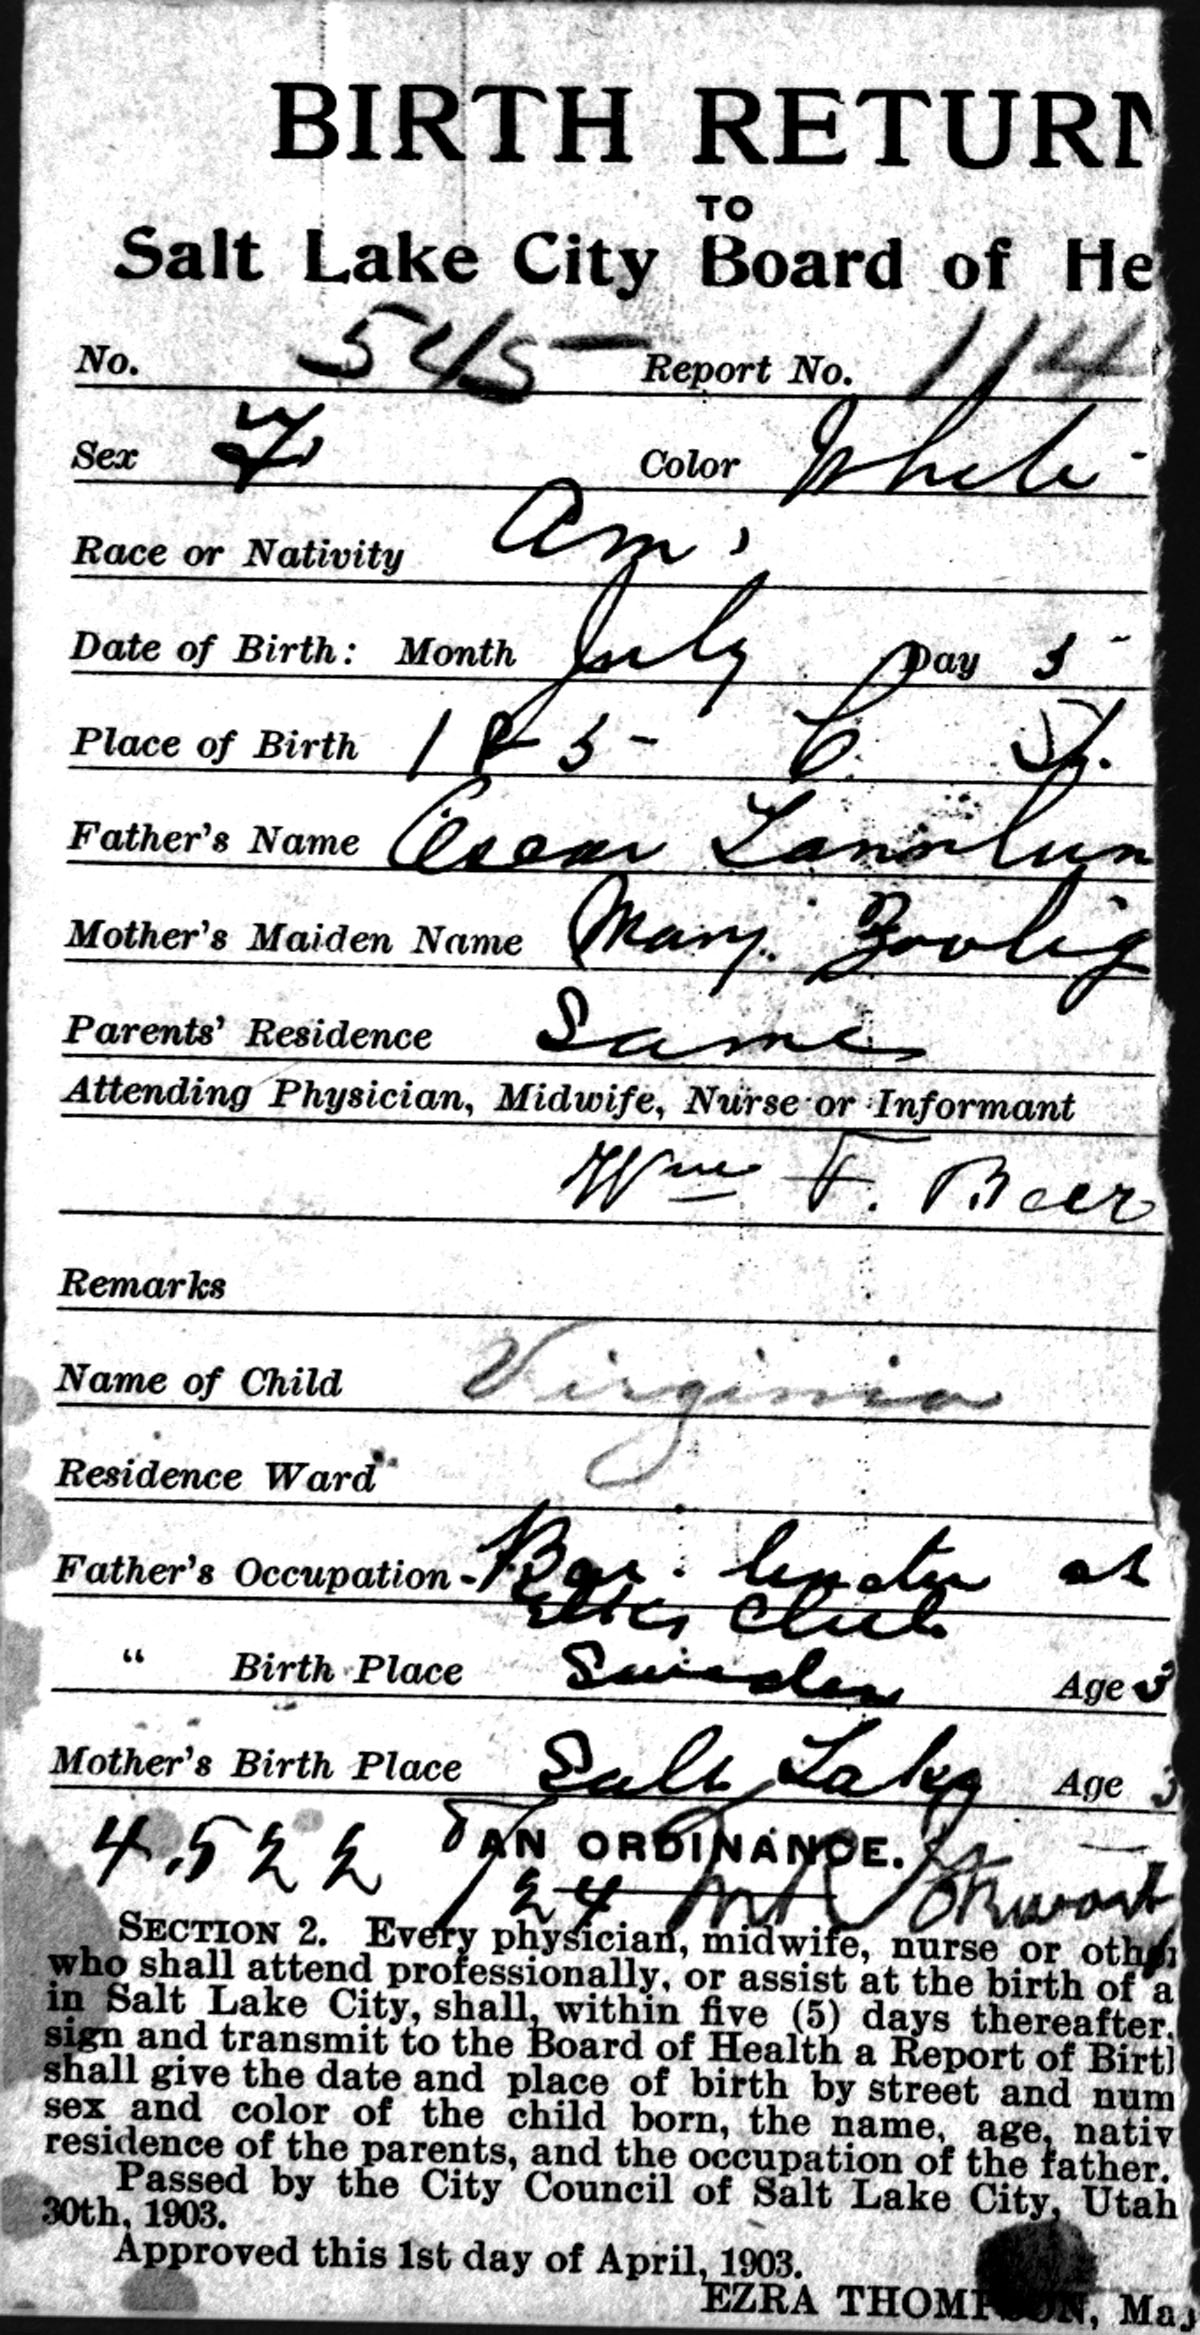 BIRTH RETURN
TO
Salt Lake City Board of He
No. 545 Report No. 114
Sex F Color White
Race or Nativity Am.
Date of Birth: Month July Day 5
Place of Birth 185 C St.
Father's Name Oscar
Mother's Maiden Name Mary
Parents' Residence Same
Attending Physician, Midwife, Nurse or Informant
Wm F. Beer
Remarks
Name of Child Virginia
Residence Ward
Father's Occupation - Bar tender at
Elks Club
" Birth Place Sweden Age 3
Mother's Birth Place Salt Lake Age 3
4522
AN ORDINANCE.
24
SECTION 2. Every physician, midwife, nurse or other
who shall attend professionally, or assist at the birth of a
in Salt Lake City, shall, within five (5) days thereafter,
sign and transmit to the Board of Health a Report of Birth
shall give the date and place of birth by street and num
sex and color of the child born, the name, age, nativ
residence of the parents, and the occupation of the father.
Passed by the City Council of Salt Lake City, Utah
30th, 1903.
Approved this 1st day of April, 1903.
EZRA THOMPSON, May